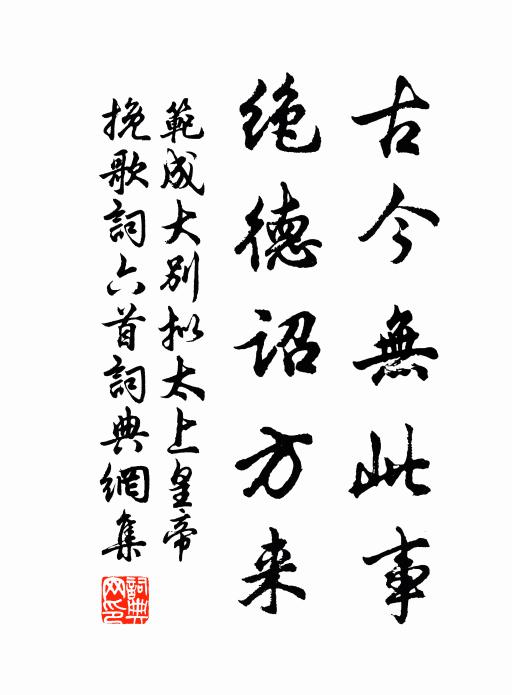 古今無此事
絶德詔方来
範成大別擬太上皇帝
挽歌詞六首詞典網集
詞典
网印